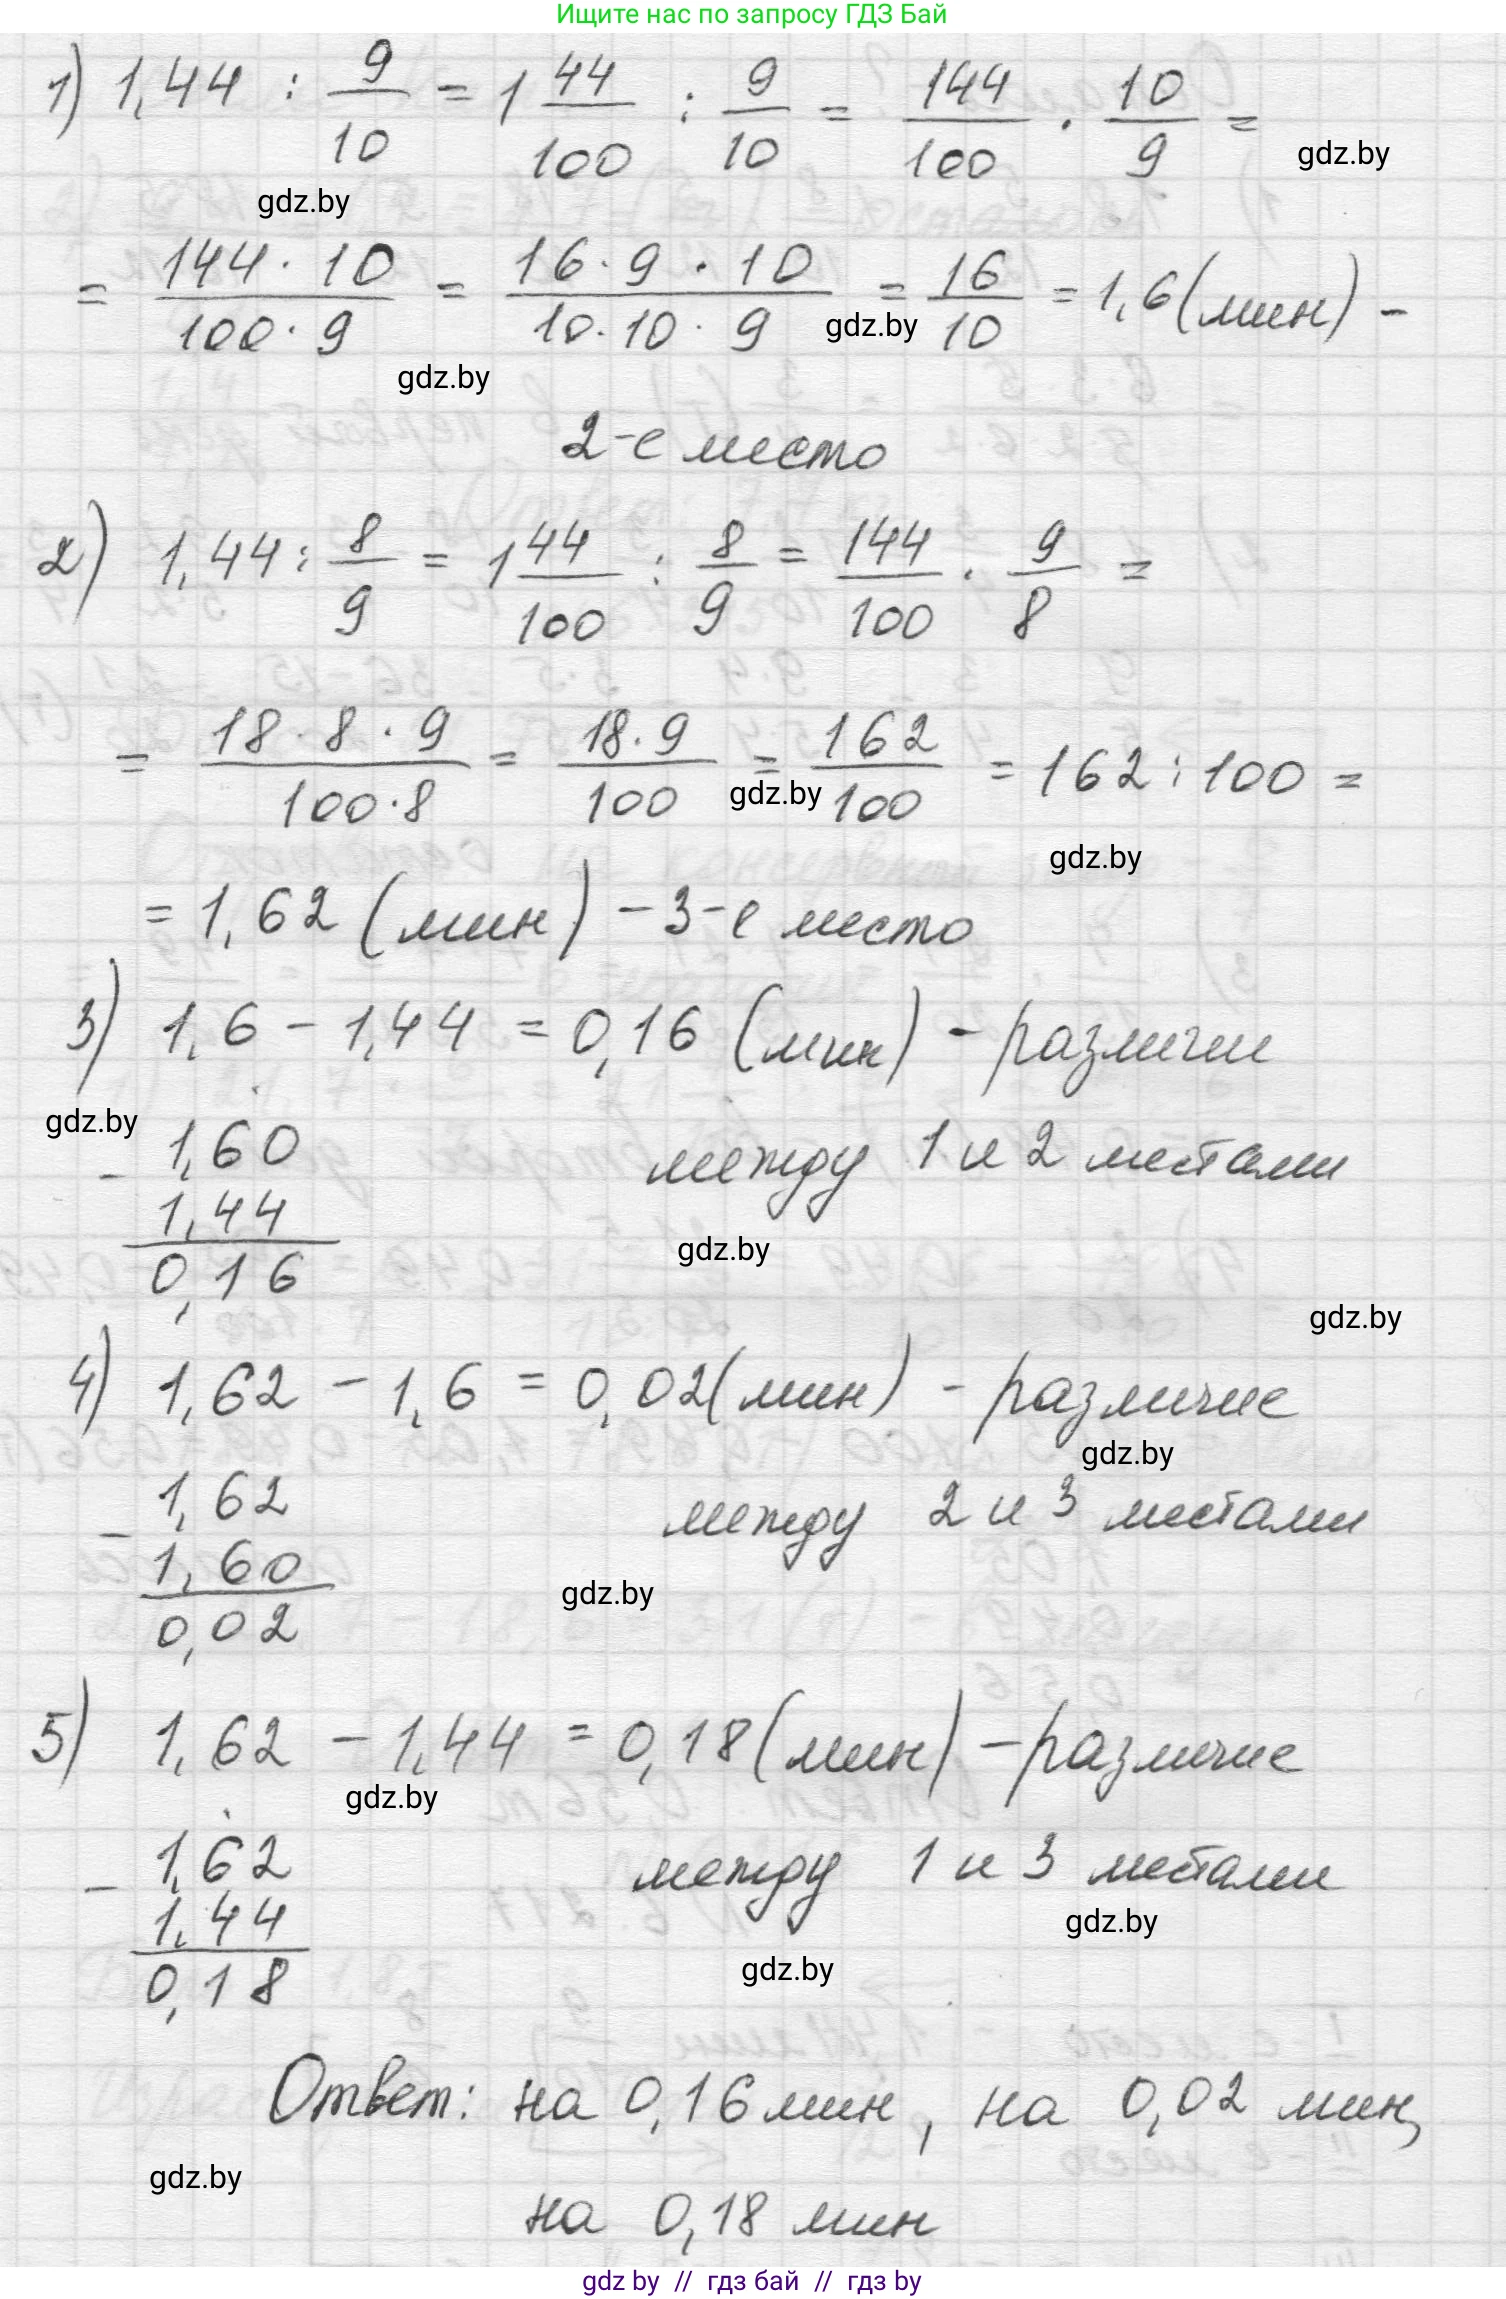 Ищите нас по запросу ГДЗ Бай
1) 1,44 : 9/10 = 1 44/100 : 9/10 = 144/100 · 10/9 =
gdz.by
gdz.by
= 144 · 10/100 · 9 = 16 · 9 · 10/10 · 10 · 9 = 16/10 = 1,6 (мин) -
gdz.by
gdz.by
2-е место
2) 1,44 : 8/9 = 1 44/100 : 8/9 = 144/100 · 9/8 =
= 18 · 8 · 9/100 · 8 = 18 · 9/100 = 162/100 = 162 : 100 =
gdz.by
gdz.by
= 1,62 (мин) - 3-е место
3) 1,6 - 1,44 = 0,16 (мин) - различии
gdz.by
- 1,60
между 1 и 2 местами
1,44
gdz.by
0,16
gdz.by
4) 1,62 - 1,6 = 0,02 (мин) - различие
gdz.by
- 1,62
между 2 и 3 местами
1,60
gdz.by
0,02
5) 1,62 - 1,44 = 0,18 (мин) - различие
gdz.by
- 1,62
между 1 и 3 местами
1,44
gdz.by
gdz.by
0,18
Ответ: на 0,16 мин, на 0,02 мин,
gdz.by
на 0,18 мин
gdz by // гдз бай // гдз by